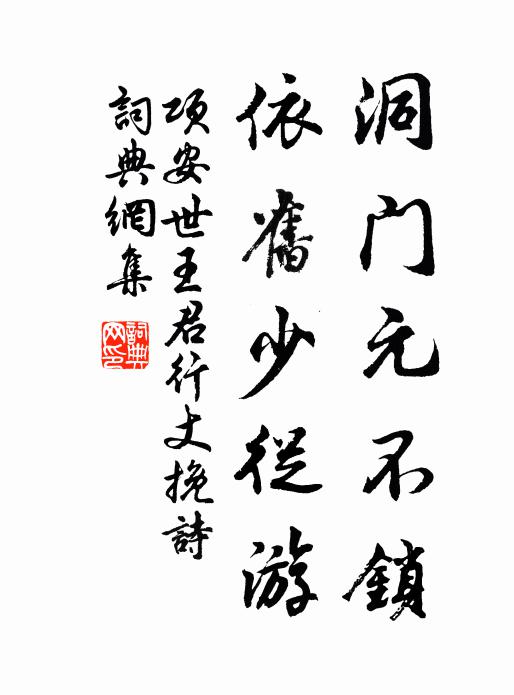 洞门元不鎖
依舊少從游
項安世王君行丈挽詩
詞典網集
詞典网印